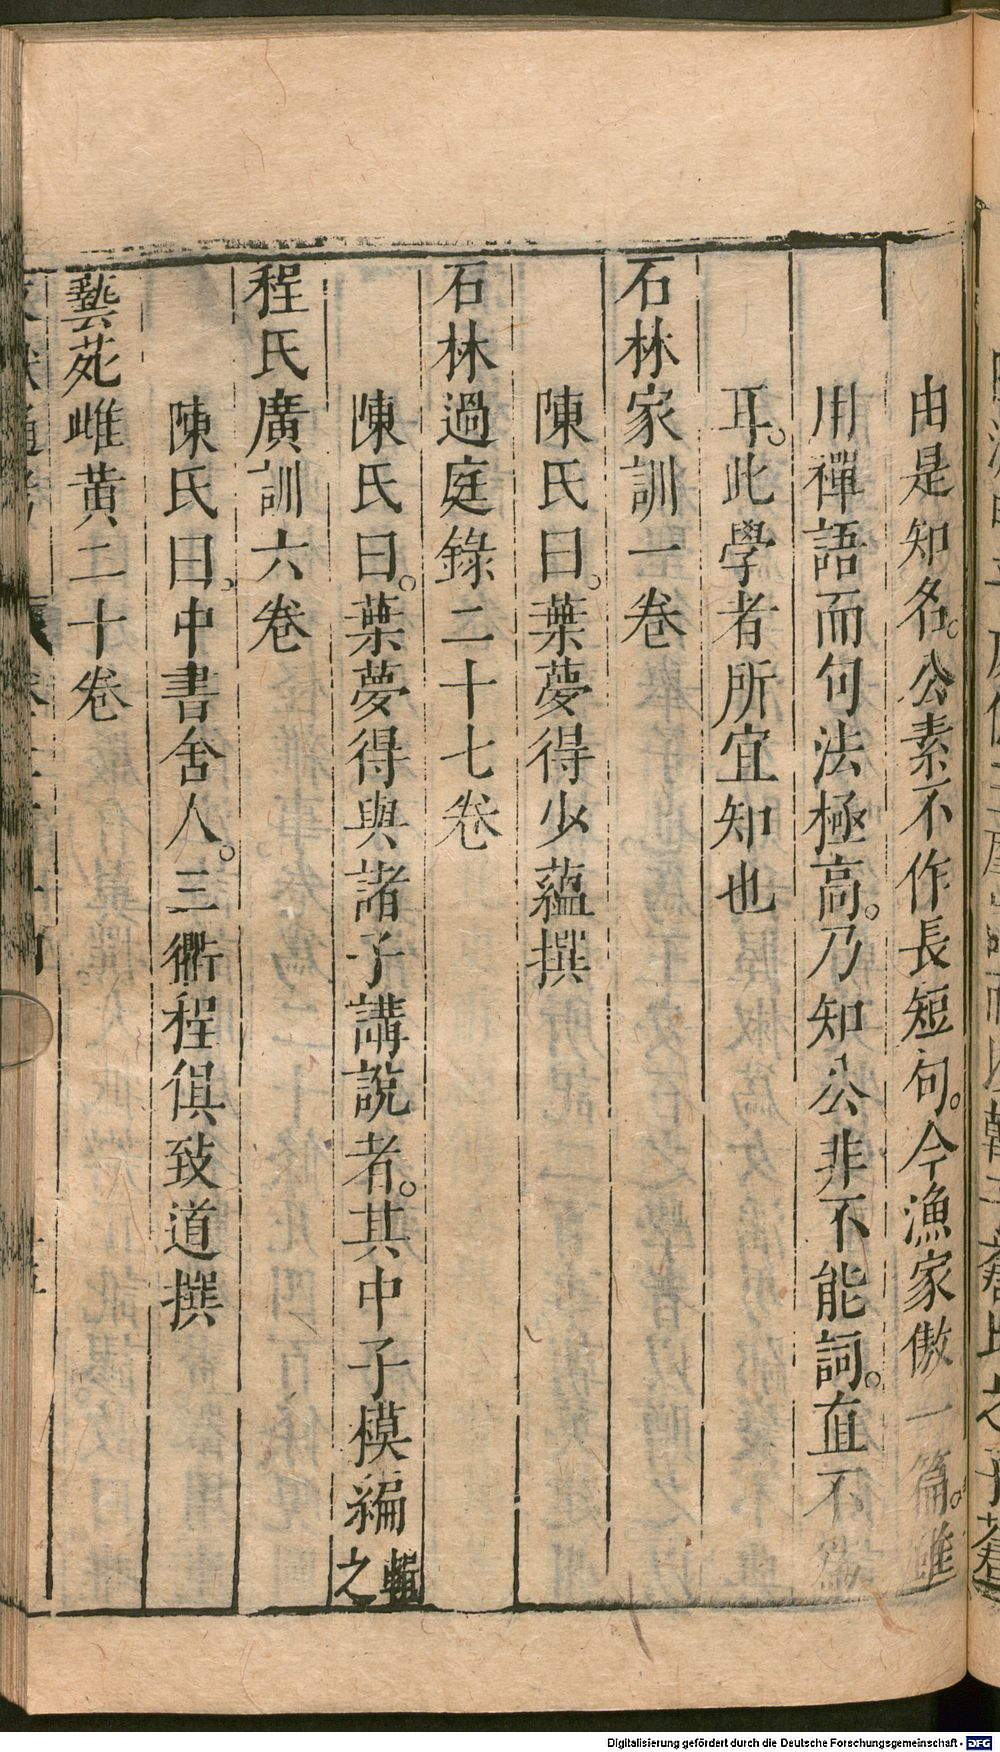 由是知名。公素不作長短句。今漁家傲一篇。雖
用禪語而句法極高。乃知公非不能詞。直不
耳。此學者所宜知也
石林家訓一卷
陳氏曰。葉夢得少蘊撰
石林過庭錄二十七卷
陳氏曰。葉夢得與諸子講說者。其中子模編輯之
程氏廣訓六卷
陳氏曰。中書舍人。三衢程俱致道撰
藝苑雌黃二十卷
Digitalisierung gefördert durch die Deutsche Forschungsgemeinschaft - DFG